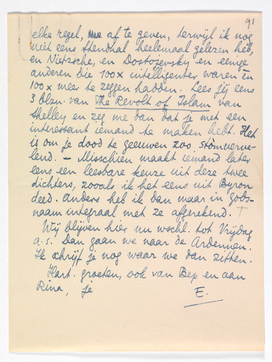 91
elke regel, af te geven, terwijl ik nog
niet eens Stendhal heelemaal gelezen heb,
en Nietzsche, en Dostojevsky en eenige
anderen die 100x intelligenter waren en
100x meer te zeggen hadden. Lees jij eens
3 blzn. van The Revolt of Islam van
Shelley en zeg me dan dat je met een
interessant iemand te maken hebt. Het
is om je dood te geeuwen zoo stomverve-
lend. – Misschien maakt iemand later
eens een leesbare keuze uit deze twee
dichters, zooals ik het eens uit Byron
deed. Anders heb ik dan maar in gods-
naam integraal met ze afgerekend.
Wij blijven hier nu wschl. tot Vrijdag
a.s. Dan gaan we naar de Ardennen.
Ik schrijf je nog waar we dan zitten.
Hart. groeten, ook van Bep en aan
Rina, je
E.